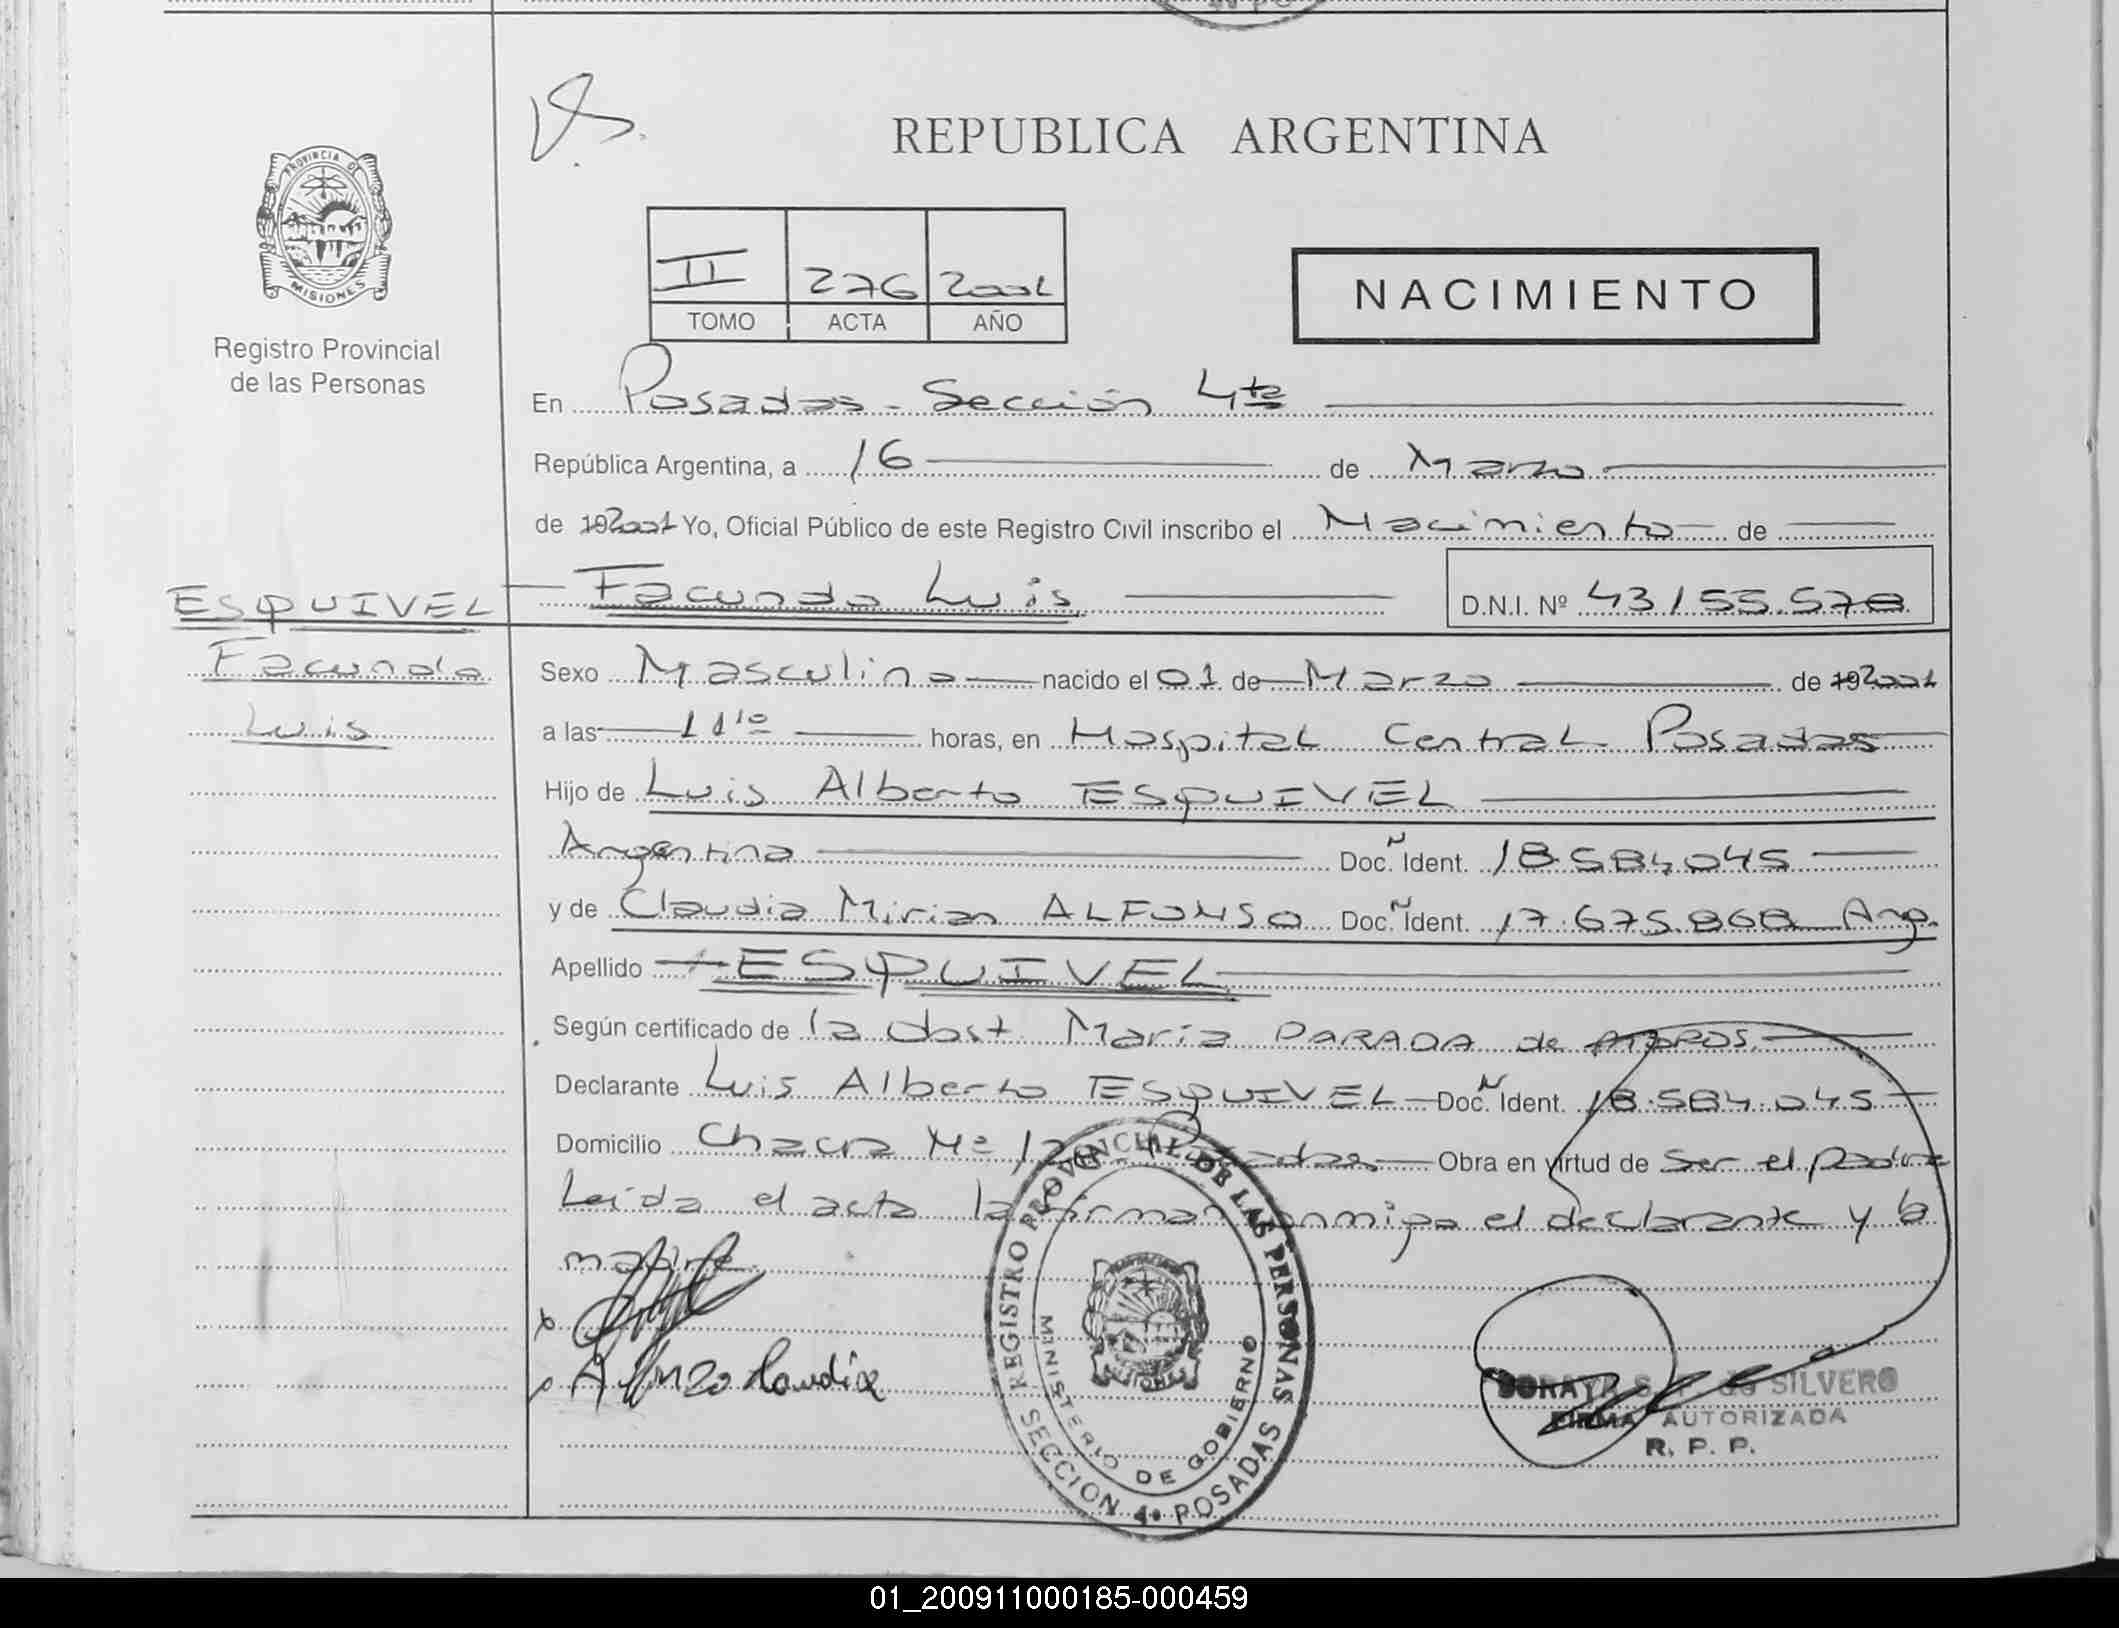 REPUBLICA ARGENTINA
PROVINCIA DE
MISIONES
Registro Provincial
de las Personas
II 276 2001
TOMO ACTA AÑO
NACIMIENTO
En Posadas - Sección 4ta
República Argentina, a 16 de Marzo
de 192001 Yo, Oficial Público de este Registro Civil inscribo el Nacimiento de
ESQUIVEL Facundo Luis D.N.I. Nº 43155.578
Facundo
Luis
Sexo Masculino nacido el 01 de Marzo de 192001
a las 11 10 horas, en Hospital Central Posadas
Hijo de Luis Alberto ESQUIVEL
Argentina Doc. Ident. 18.584.045
y de Claudia Mirian ALFONSO Doc. Ident. 17.675.868 Arg.
Apellido ESQUIVEL
Según certificado de la Obst. María PARADA de
Declarante Luis Alberto ESQUIVEL Doc. Ident. 18.584.045
Domicilio Chacra Nº Posadas Obra en virtud de Ser el padre
Leída el acta la firman conmigo el declarante y la
madre.
Claudia
REGISTRO PROVINCIAL DE LAS PERSONAS
MINISTERIO DE GOBIERNO
SECCION 4ª POSADAS
SORAYA S. F. de SILVERO
FIRMA AUTORIZADA
R. P. P.
01_200911000185-000459